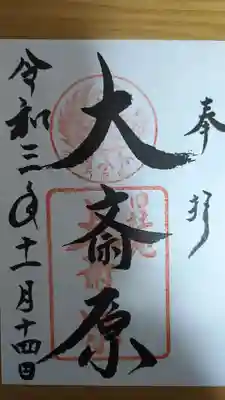 奉拝
大斎原
令和三年十一月十四日